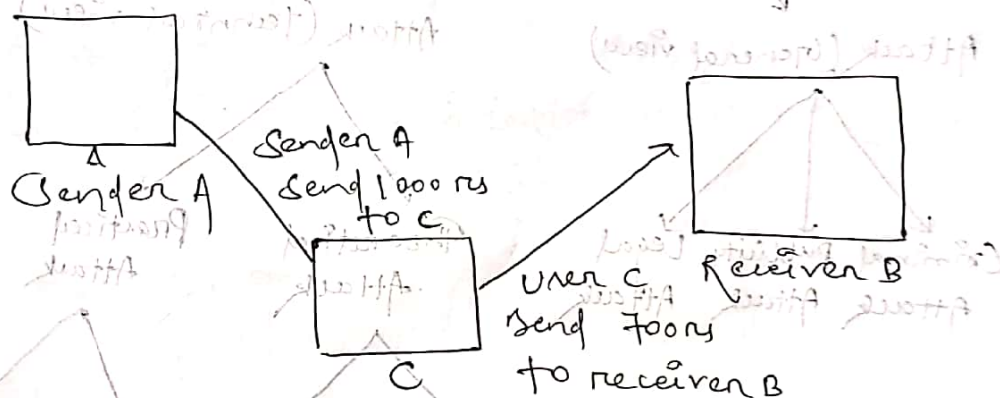 A
Sender A
Sender A
Send 1000 rs
to C
C
User C
Send 700 rs
to receiver B
Receiver B